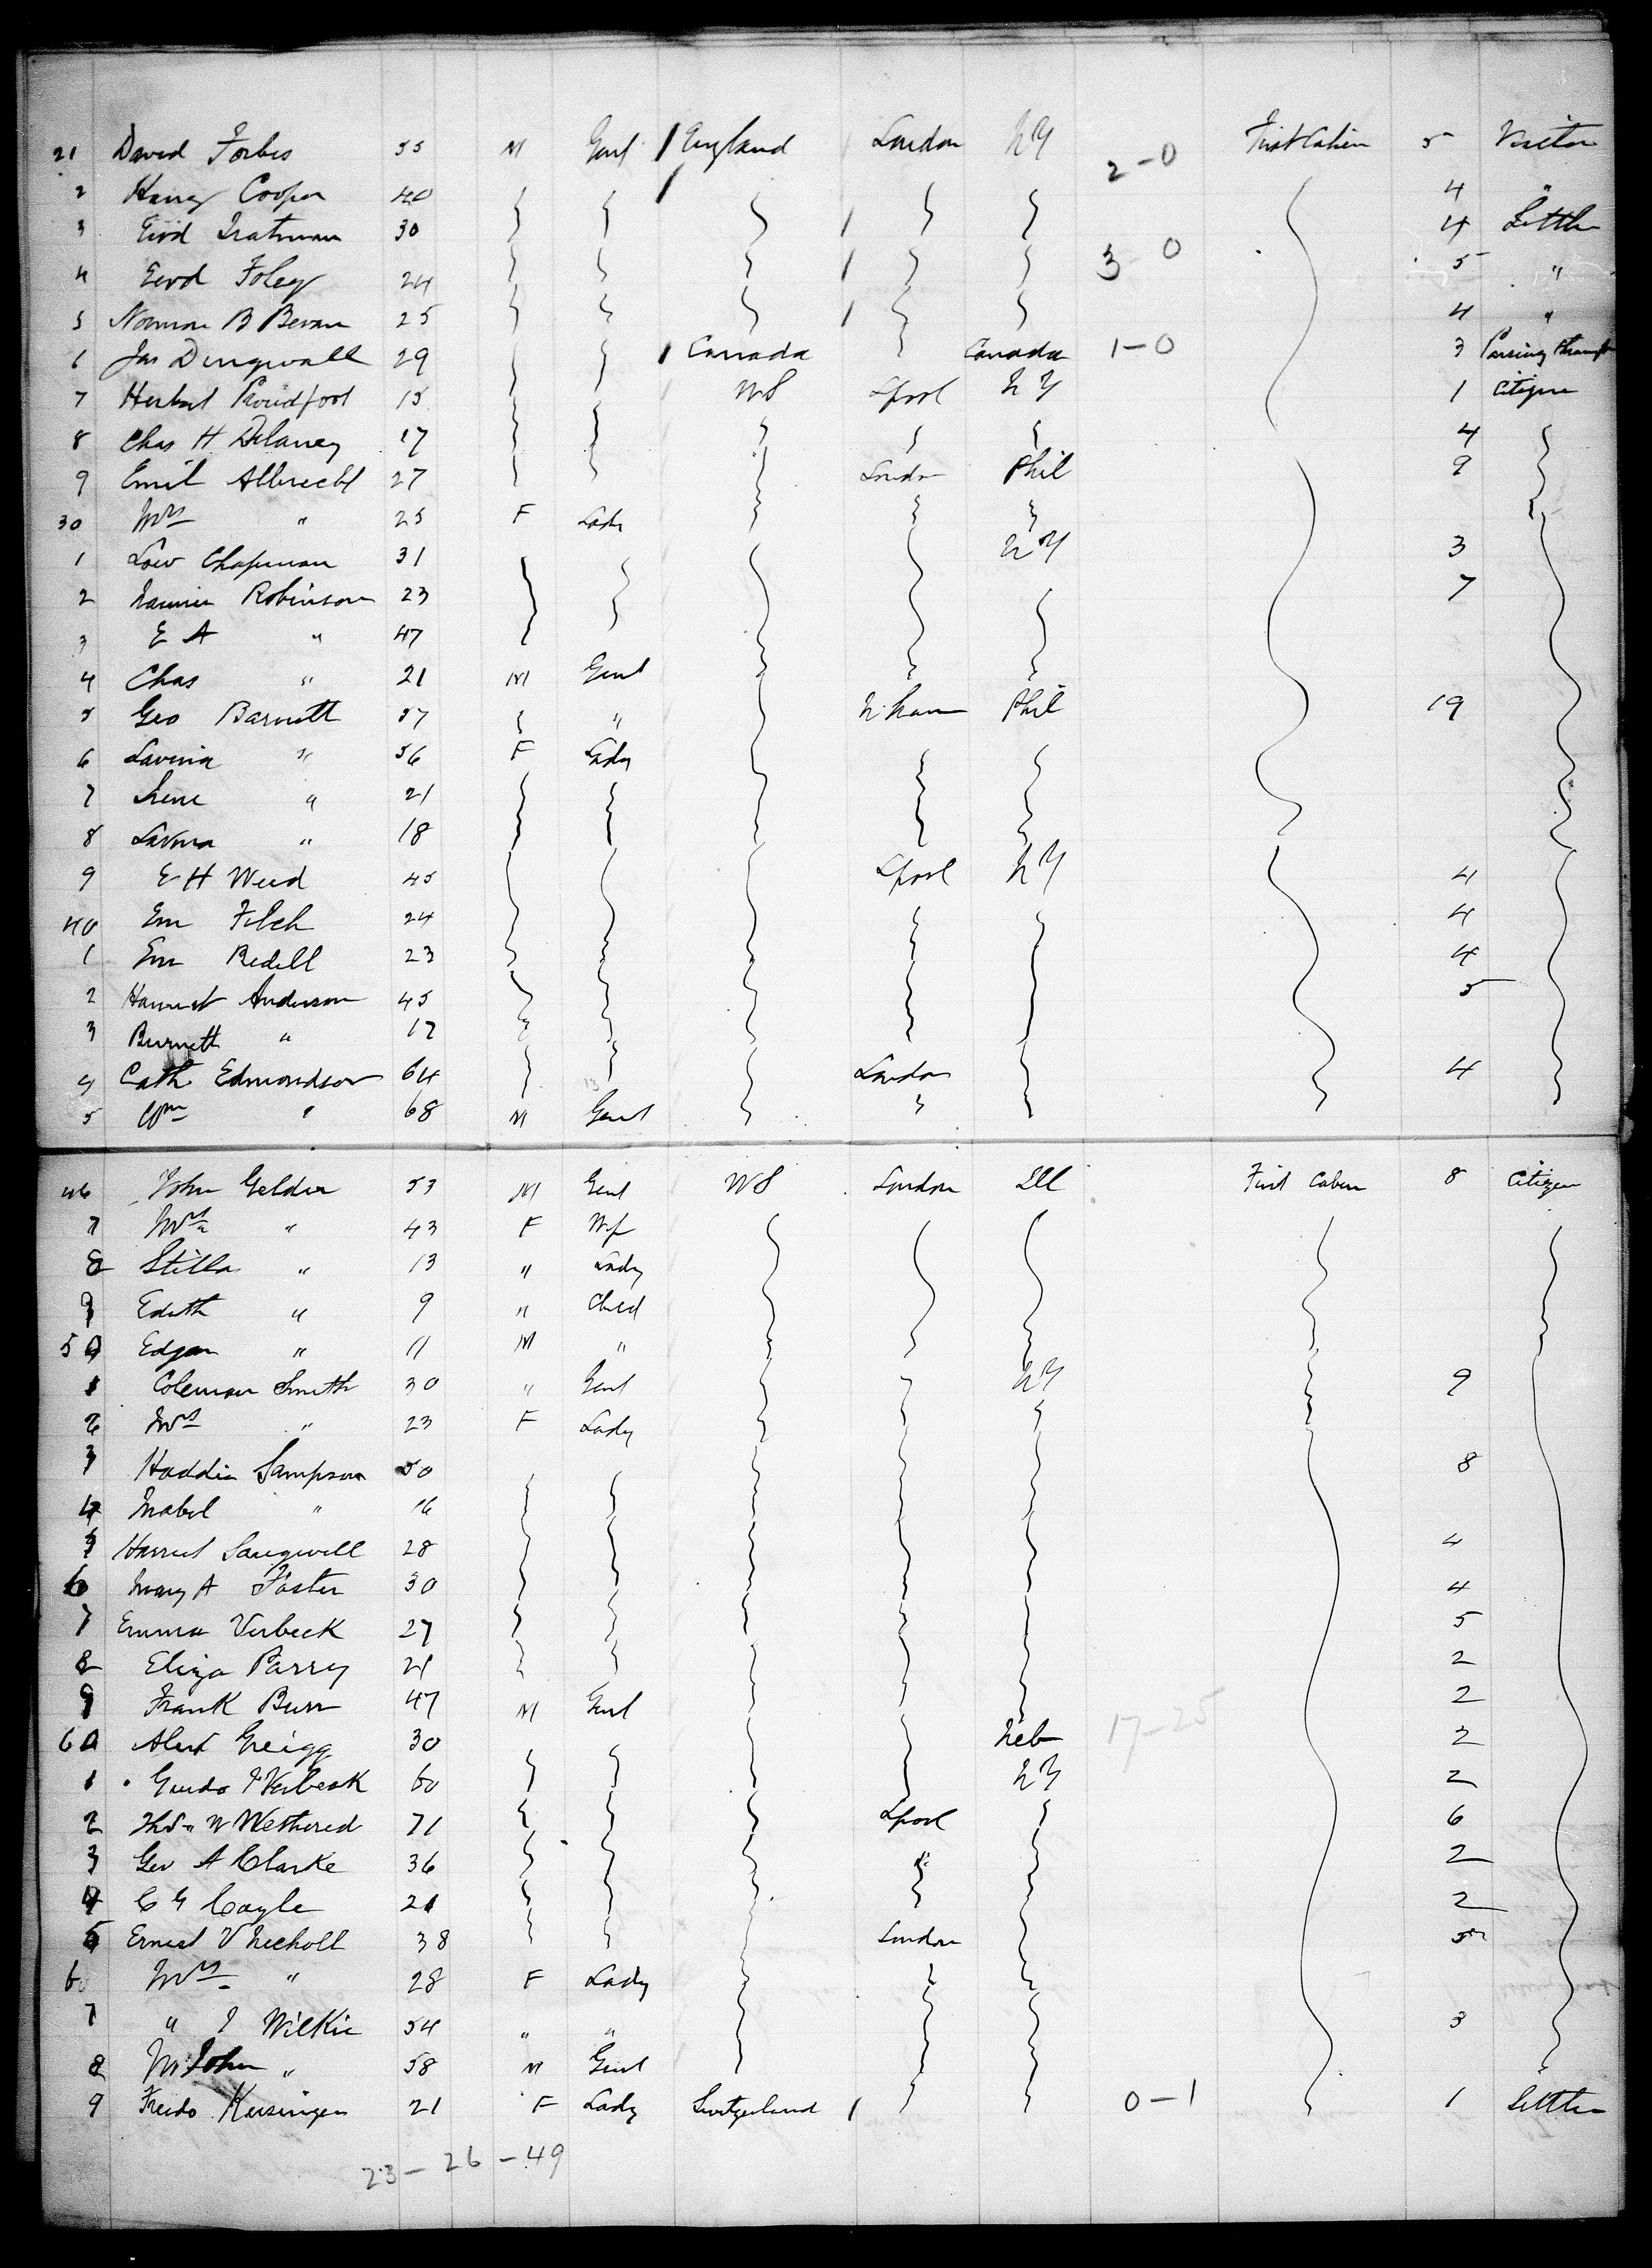 21 David Forbes 55 M Gent England London NY 2-0 First Cabin 5 Visitor
2 Harry Cooper 40 4 "
3 30 4 Settler
3-0
4 Foley 24 5 "
5 Norman B Bevan 25 4 "
6 Jas Dingwall 29 Canada Canada 1-0 3 Passing through
7 Herbert Proudfoot 15 US Lpool NY 1 Citizen
8 Chas H Delaney 17 4
9 Emil Albrecht 27 London Phil 9
30 Mrs " 25 F Lady
1 Chapman 31 NY 3
2 Robinson 23 7
3 E A " 47
4 Chas " 21 M Gent
5 Geo Barnett 57 " Phil 19
6 Lavinia " 56 F Lady
7 Irene " 21
8 " 18
9 E H Weed 45 Lpool NY 4
40 Em 24 4
1 Em Bedell 23 4
2 Harriet Anderson 45 5
3 Burnett " 17
4 Cath Edmondson 64 London 4
5 Wm " 68 M Gent
46 John Gelder 53 M Gent US London Ill First Cabin 8 Citizen
7 Mrs " 43 F Wf
8 Stella " 13 " Lady
9 Edith " 9 " Child
50 Edgar " 11 M "
1 Coleman Smith 30 " Gent NY 9
2 Mrs " 23 F Lady
3 Sampson 50 8
4 Mabel " 16
5 Harriet 28 4
6 Mary A Foster 30 4
7 Emma Verbeck 27 5
8 Eliza Parry 21 2
9 Frank Burr 47 M Gent 2
60 Greigg 30 Neb 17-25 2
1 Guido Verbeck 60 NY 2
2 Wethered 71 Lpool 6
3 Geo A Clarke 36 " 2
4 C G Coyle 21 2
5 Ernest V Nicholl 38 London 5
6 Mrs " 28 F Lady
7 " J Wilkie 54 " " 3
8 Mr John " 58 M Gent
9 21 F Lady Switzerland 0-1 1 Settler
23-26-49